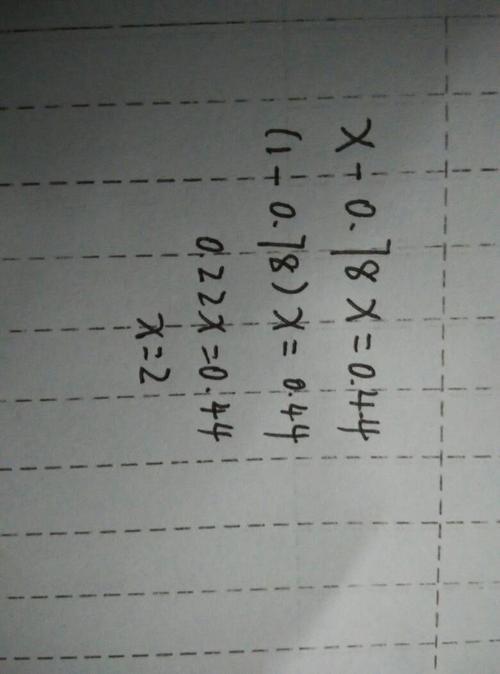 x - 0.78x = 0.44
(1 - 0.78)x = 0.44
0.22x = 0.44
x = 2